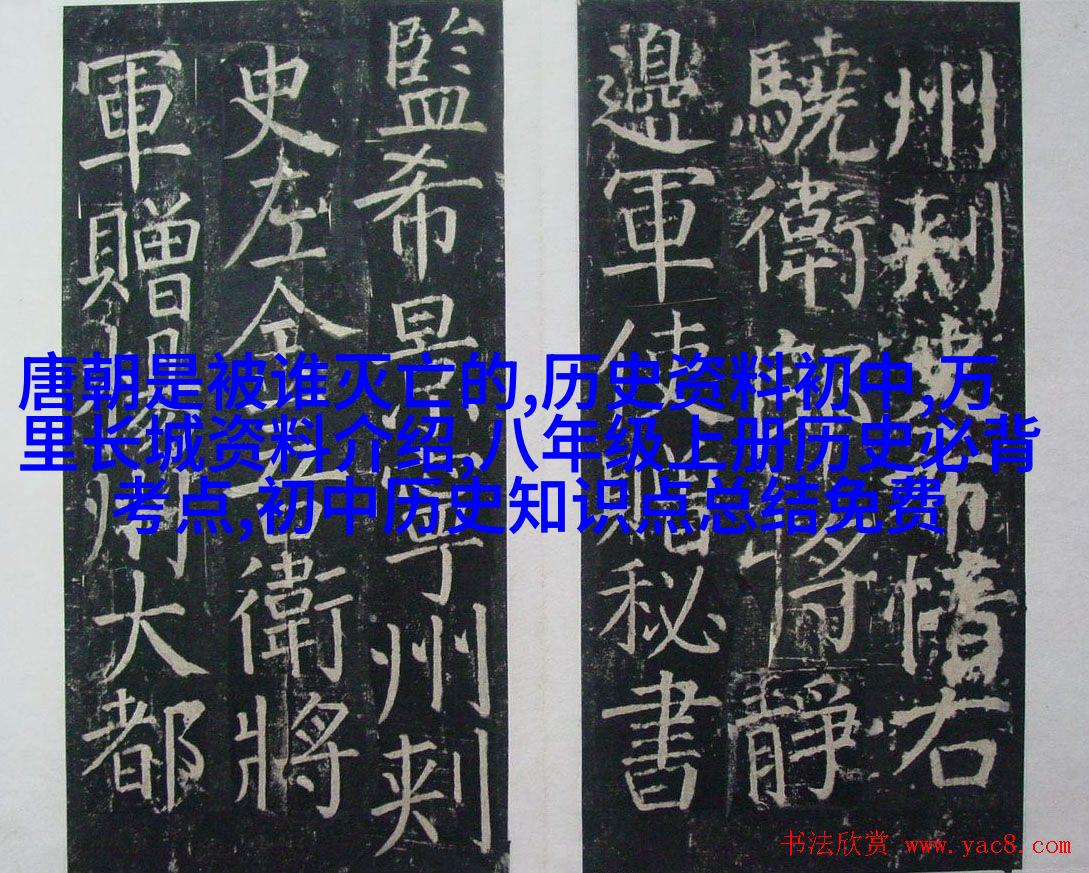 州刺史希愔右
驍衛郎將靜
邊軍使贈秘書
監希景寧州刺
史左金吾衛將
軍贈揚州大都
唐朝是被谁灭亡的,历史资料初中,万
里长城资料介绍,八年级上册历史必背
考点,初中历史知识点总结免费
书法欣赏 www.yac8.com